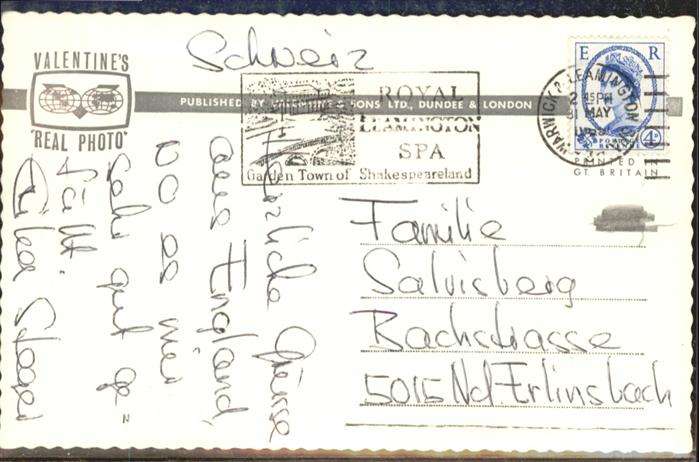 Schweiz
VALENTINE'S
"REAL PHOTO"
PUBLISHED BY VALENTINE & SONS LTD., DUNDEE & LONDON
ROYAL
LEAMINGTON
SPA
Garden Town of Shakespeareland
E R
LEAMINGTON SPA
WARWICK
2 45PM
31 MAY
POSTAGE
REVENUE
4D
PRINTED
GT. BRITAIN
Familie
Salvisberg
Bachstrasse
5015 Nd. Erlinsbach
Herzliche Grüsse
aus England,
wo es mir
sehr gut ge-
fällt.